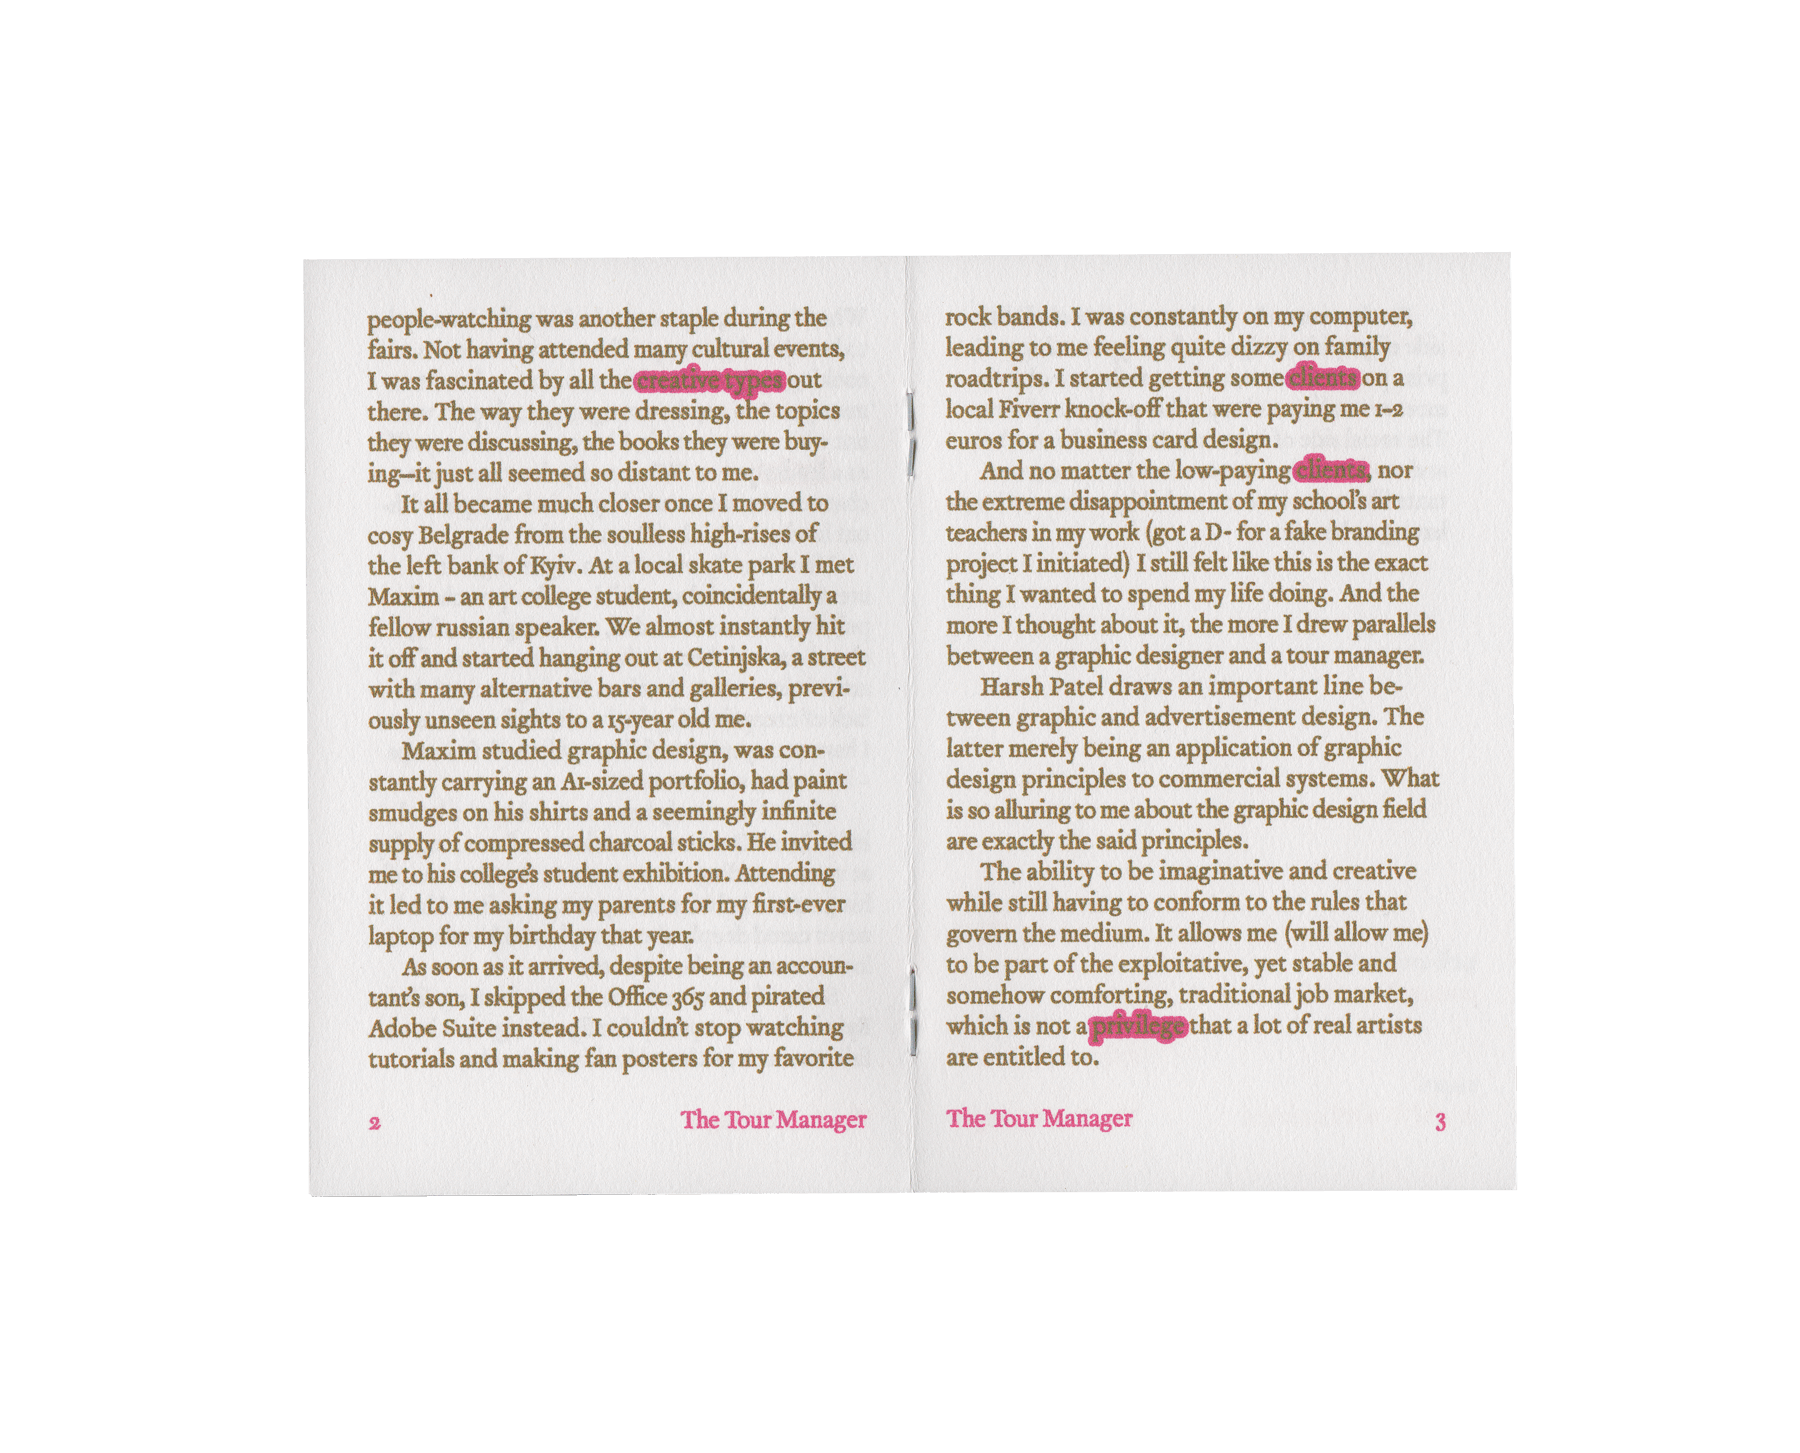 people-watching was another staple during the
fairs. Not having attended many cultural events,
I was fascinated by all the creative types out
there. The way they were dressing, the topics
they were discussing, the books they were buy-
ing—it just all seemed so distant to me.
It all became much closer once I moved to
cosy Belgrade from the soulless high-rises of
the left bank of Kyiv. At a local skate park I met
Maxim – an art college student, coincidentally a
fellow russian speaker. We almost instantly hit
it off and started hanging out at Cetinjska, a street
with many alternative bars and galleries, previ-
ously unseen sights to a 15-year old me.
Maxim studied graphic design, was con-
stantly carrying an A1-sized portfolio, had paint
smudges on his shirts and a seemingly infinite
supply of compressed charcoal sticks. He invited
me to his college's student exhibition. Attending
it led to me asking my parents for my first-ever
laptop for my birthday that year.
As soon as it arrived, despite being an accoun-
tant's son, I skipped the Office 365 and pirated
Adobe Suite instead. I couldn't stop watching
tutorials and making fan posters for my favorite
2 The Tour Manager
rock bands. I was constantly on my computer,
leading to me feeling quite dizzy on family
roadtrips. I started getting some clients on a
local Fiverr knock-off that were paying me 1-2
euros for a business card design.
And no matter the low-paying clients, nor
the extreme disappointment of my school's art
teachers in my work (got a D- for a fake branding
project I initiated) I still felt like this is the exact
thing I wanted to spend my life doing. And the
more I thought about it, the more I drew parallels
between a graphic designer and a tour manager.
Harsh Patel draws an important line be-
tween graphic and advertisement design. The
latter merely being an application of graphic
design principles to commercial systems. What
is so alluring to me about the graphic design field
are exactly the said principles.
The ability to be imaginative and creative
while still having to conform to the rules that
govern the medium. It allows me (will allow me)
to be part of the exploitative, yet stable and
somehow comforting, traditional job market,
which is not a privilege that a lot of real artists
are entitled to.
The Tour Manager 3